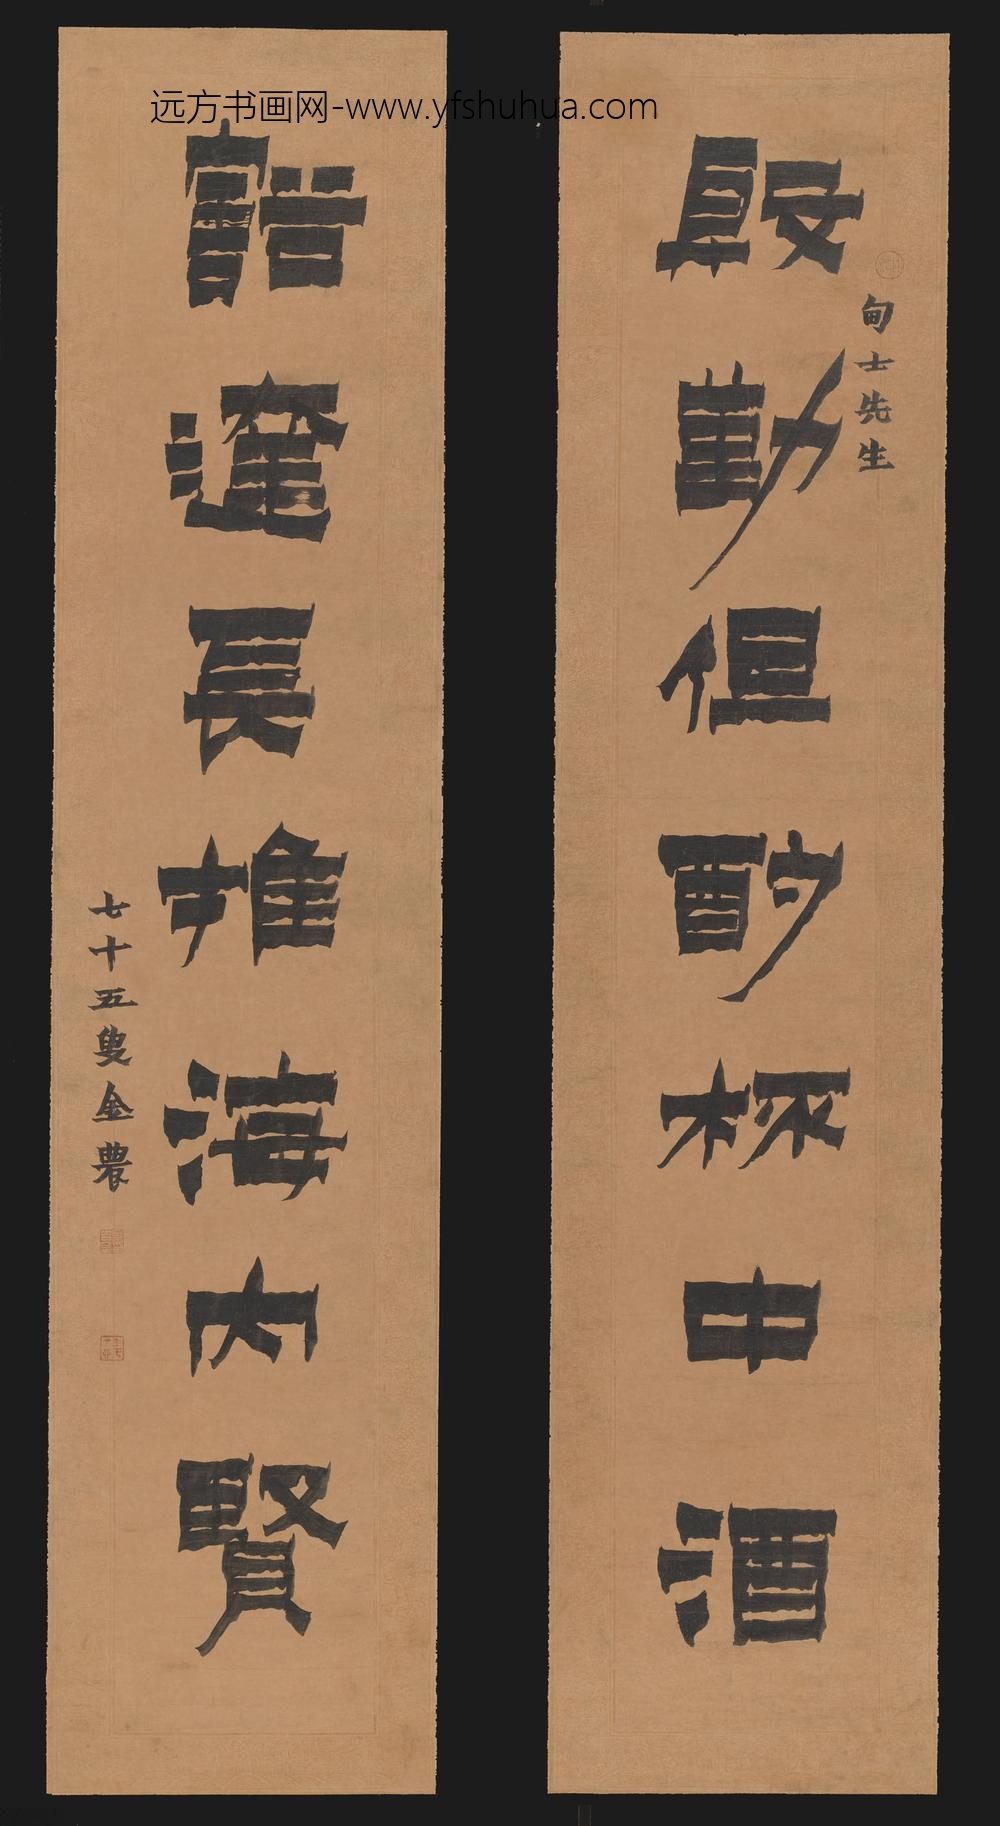 远方书画网-www.yfshuhua.com
殷勤但酌杯中酒
甸士先生
豁達長推海內賢
七十五叟金農